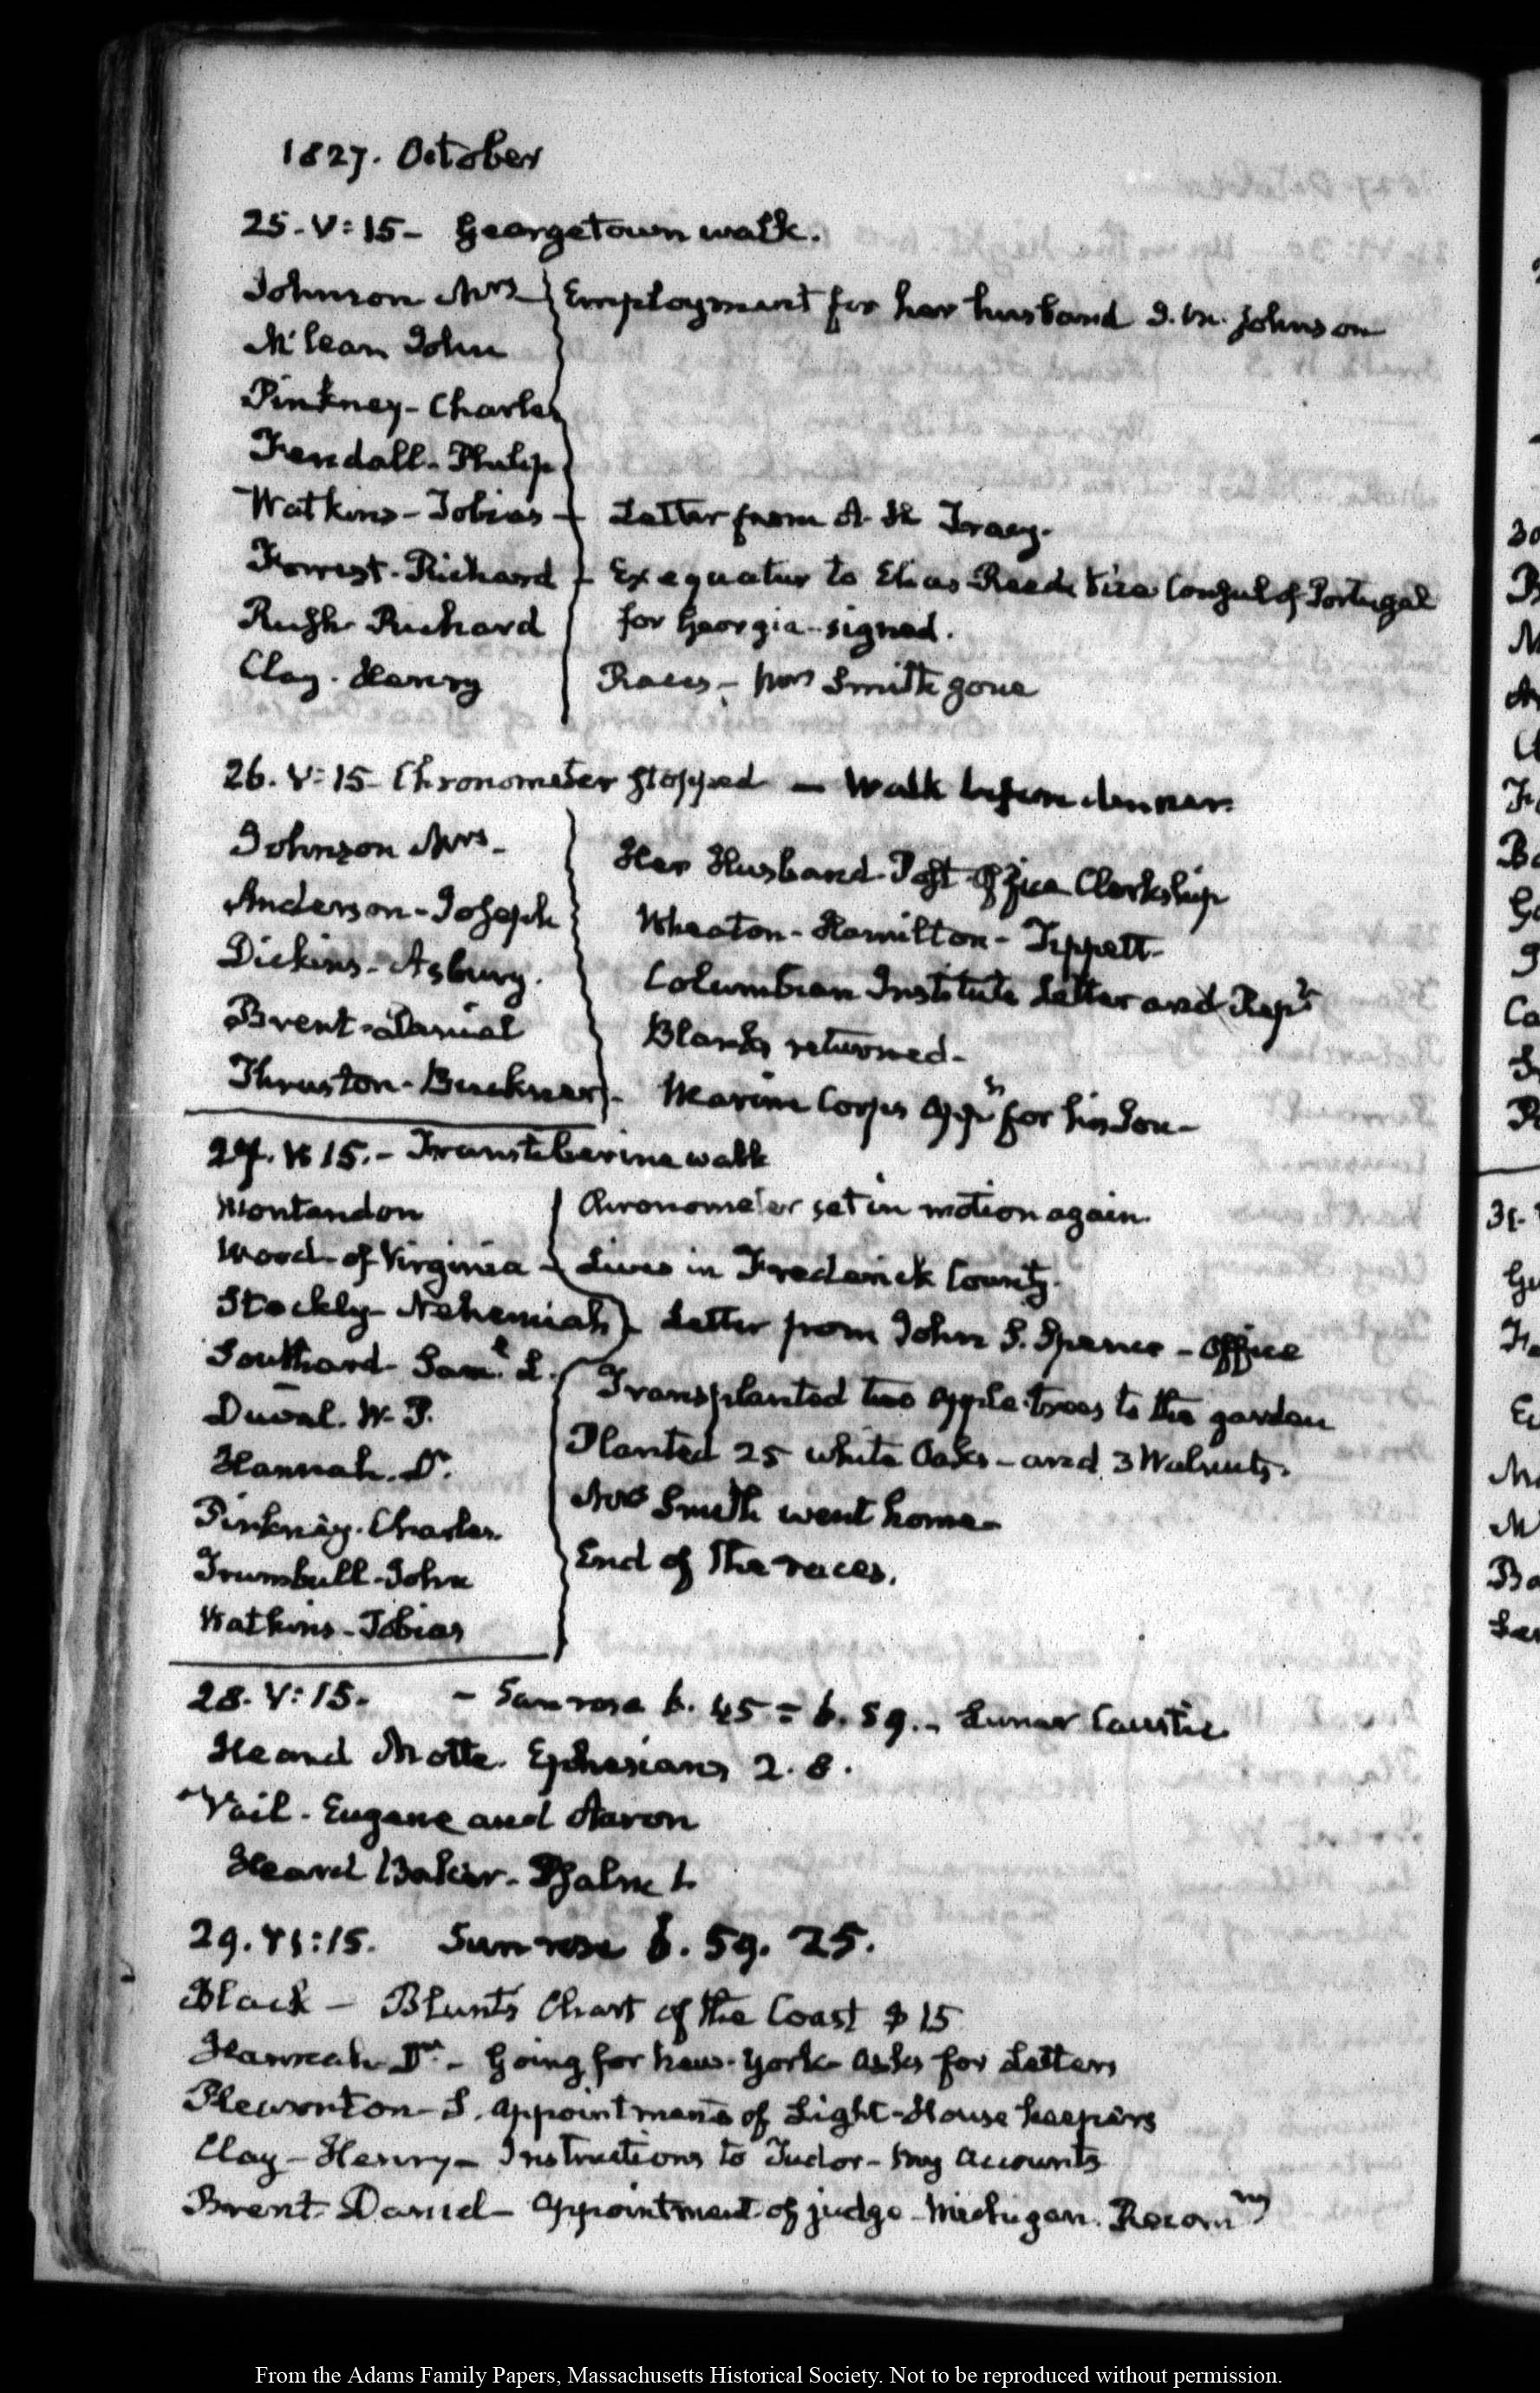 1827. October
25. V:15 - Georgetown walk.
Johnson Mrs - Employment for her husband J. M. Johnson
McLean John
Pinkney - Charles
Fendall - Philip
Watkins - Tobias - Letter from A. H. Tracy.
Forrest - Richard - Exequatur to Elias Reed Vice Consul of Portugal
Rush Richard for Georgia - signed.
Clay - Henry Races - Mrs Smith gone
26. V:15 - Chronometer stopped - Walk before dinner.
Johnson Mrs - Her Husband - Post-Office Clerkship
Anderson - Joseph Wheaton - Hamilton - Tippett -
Dickins - Asbury. Columbian Institute Letter and Rept
Brent - Daniel Blanks returned -
Thruston - Buckner - Marine Corps appt for his Son -
27. V:15. - Transtiberine walk
Montandon Chronometer set in motion again.
Wood - of Virginia - Lives in Frederick County.
Stockly - Nehemiah - Letter from John S. Spence - Office
Southard - Saml L. Transplanted two apple-trees to the garden
Duval. W. P. Planted 25 white Oaks - and 3 Walnuts.
Hannah. Dr. Mrs Smith went home -
Pinkney. Charles End of the races.
Trumbull - John
Watkins - Tobias
28. V:15. - Sun rose 6. 45 = 6. 59. - Lunar Caustic
Heard Motte. Ephesians 2. 8.
Vail - Eugene and Aaron
Heard Baker - Psalm 1.
29. VI:15. Sun rose 6. 59. 25.
Black - Blunt's Chart of the Coast $15
Hannah Dr. - Going for New-York asks for Letters
Pleasonton - S. appointments of Light-House keepers
Clay - Henry - Instructions to Tudor - my accounts
Brent - Daniel - appointment of judge - Michigan.
From the Adams Family Papers, Massachusetts Historical Society. Not to be reproduced without permission.